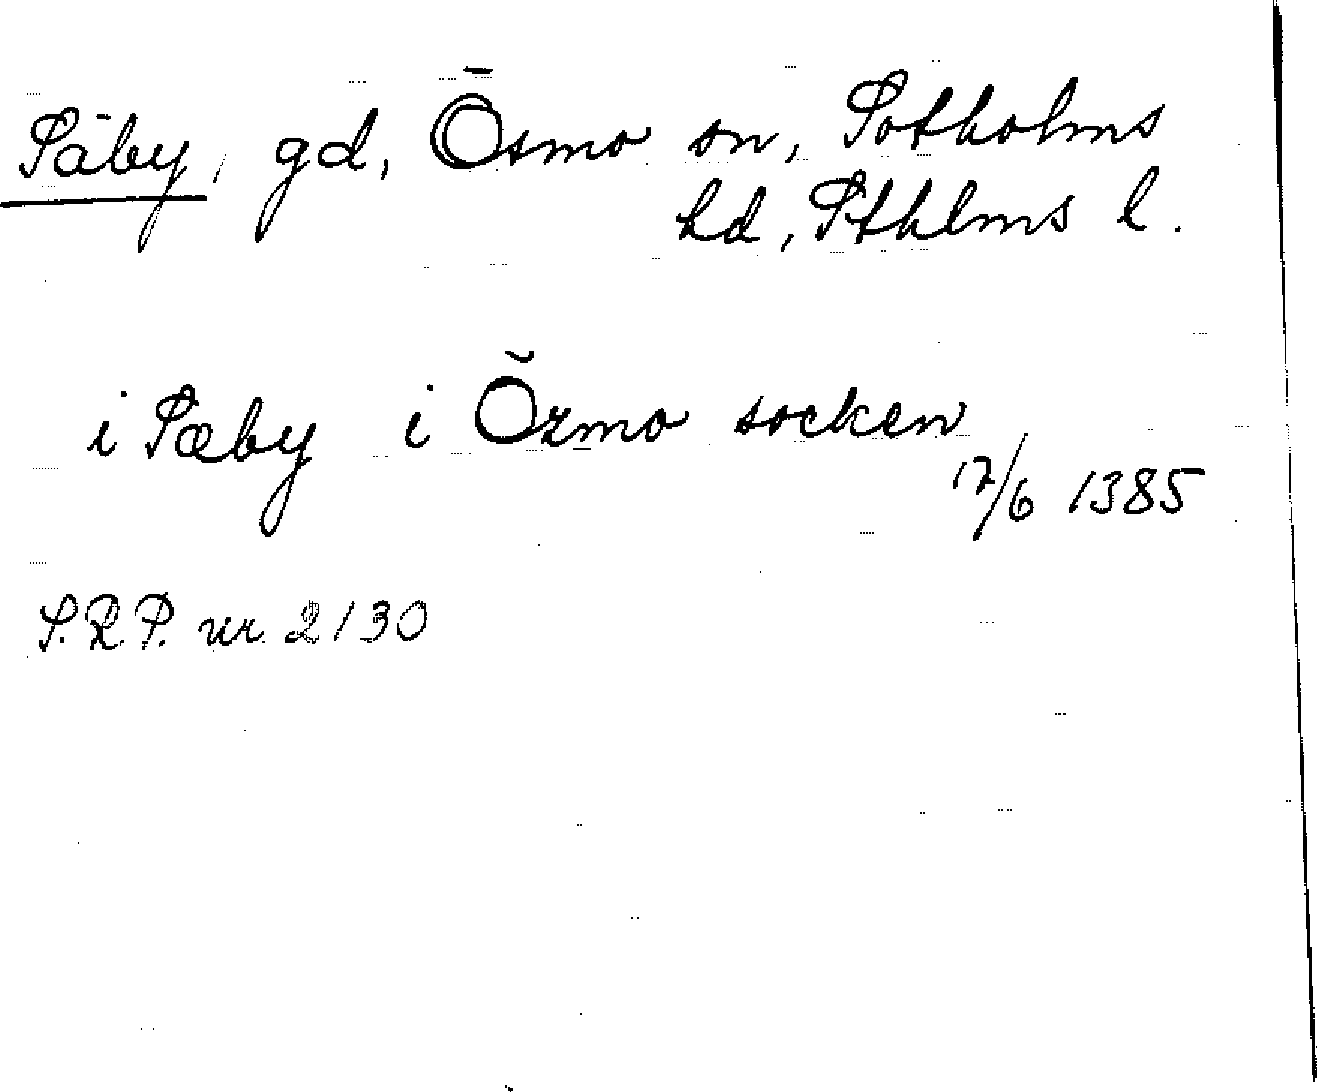 Säby, gd, Ösmo sn, Sotholms
hd, Sthlms l.
i Sæby i Özmo socken
17/6 1385
S.R.P. nr. 2130